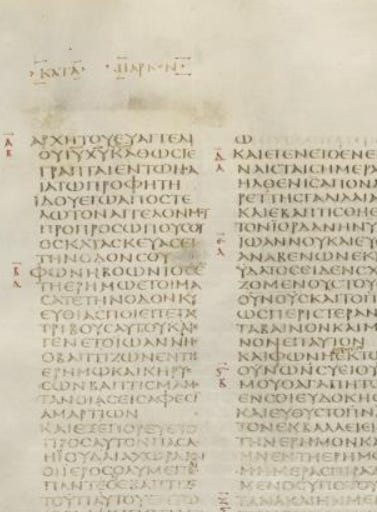 ΚΑΤΑ ΜΑΡΚΟΝ
ΑΡΧΗΤΟΥΕΥΑΓΓΕΛΙ
ΟΥΙΥΧΥΚΑΘΩϹΓΕ
ΓΡΑΠΤΑΙΕΝΤΩΗϹΑ
ΙΑΤΩΠΡΟΦΗΤΗ
ΙΔΟΥΕΓΩΑΠΟϹΤΕ
ΛΩΤΟΝΑΓΓΕΛΟΝΜΟΥ
ΠΡΟΠΡΟϹΩΠΟΥϹΟΥ
ΟϹΚΑΤΑϹΚΕΥΑϹΕΙ
ΤΗΝΟΔΟΝϹΟΥ
ΦΩΝΗΒΟΩΝΤΟϹΕΝ
ΤΗΕΡΗΜΩΕΤΟΙΜΑ
ϹΑΤΕΤΗΝΟΔΟΝΚΥ
ΕΥΘΙΑϹΠΟΙΕΙΤΕΤΑϹ
ΤΡΙΒΟΥϹΑΥΤΟΥΚΑΙ
ΕΓΕΝΕΤΟΙΩΑΝΝΗϹ
ΟΒΑΠΤΙΖΩΝΕΝΤΗ
ΕΡΗΜΩΚΑΙΚΗΡΥϹ
ϹΩΝΒΑΠΤΙϹΜΑΜΕ
ΤΑΝΟΙΑϹΕΙϹΑΦΕϹΙ
ΑΜΑΡΤΙΩΝ
ΚΑΙΕΞΕΠΟΡΕΥΕΤΟ
ΠΡΟϹΑΥΤΟΝΠΑϹΑ
ΗΙΟΥΔΑΙΑΧΩΡΑΚΑΙ
ΟΙΙΕΡΟϹΟΛΥΜΕΙΤΑΙ
ΠΑΝΤΕϹΕΒΑΠΤΙΖΟΝ
ΤΟΥΠΑΥΤΟΥΕΝΤΩ
ΚΑΙΕΓΕΝΕΤΟΕΝΕ
ΝΑΙϹΤΑΙϹΗΜΕΡΑ
ΗΛΘΕΝΙϹΑΠΟΝΑ
ΡΕΤΤΗϹΓΑΛΙΛΑΙΑ
ΚΑΙΕΒΑΠΤΙϹΘΗΕ
ΤΟΝΙΟΡΔΑΝΗΝΥ
ΙΩΑΝΝΟΥΚΑΙΕΥ
ΑΝΑΒΕΝΩΝΕΚ
ΥΔΑΤΟϹΕΙΔΕΝϹΧ
ΖΟΜΕΝΟΥϹΤΟΥ
ΟΥΝΟΥϹΚΑΙΤΟΠ
ΩϹΠΕΡΙϹΤΕΡΑΝ
ΤΑΒΑΙΝΟΝΚΑΙΜ
ΝΟΝΕΠΑΥΤΟΝ
ΚΑΙΦΩΝΗΕΚΤ
ΟΥΝΩΝϹΥΕΙΟΥ
ΜΟΥΟΑΓΑΠΗΤΟ
ΕΝϹΟΙΕΥΔΟΚΗϹ
ΚΑΙΕΥΘΥϹΤΟΠΝΑ
ΤΟΝΕΚΒΑΛΛΕΙΕΙ
ΤΗΝΕΡΗΜΟΝΚΑΙ